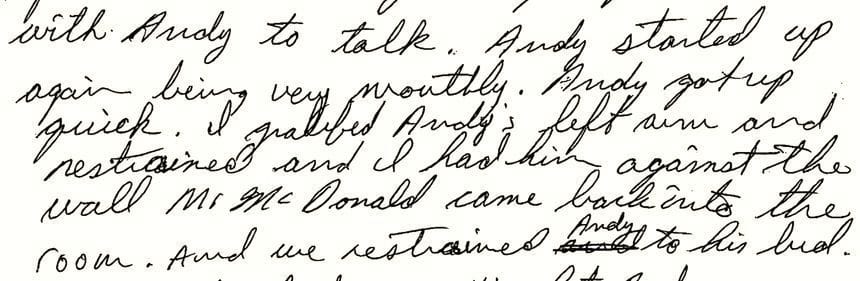 with Andy to talk. Andy started up
again being very mouthly. Andy got up
quick. I grabbed Andy's left arm and
restrained and I had him against the
wall Mr McDonald came back into the
room. And we restrained Andy to his bed.